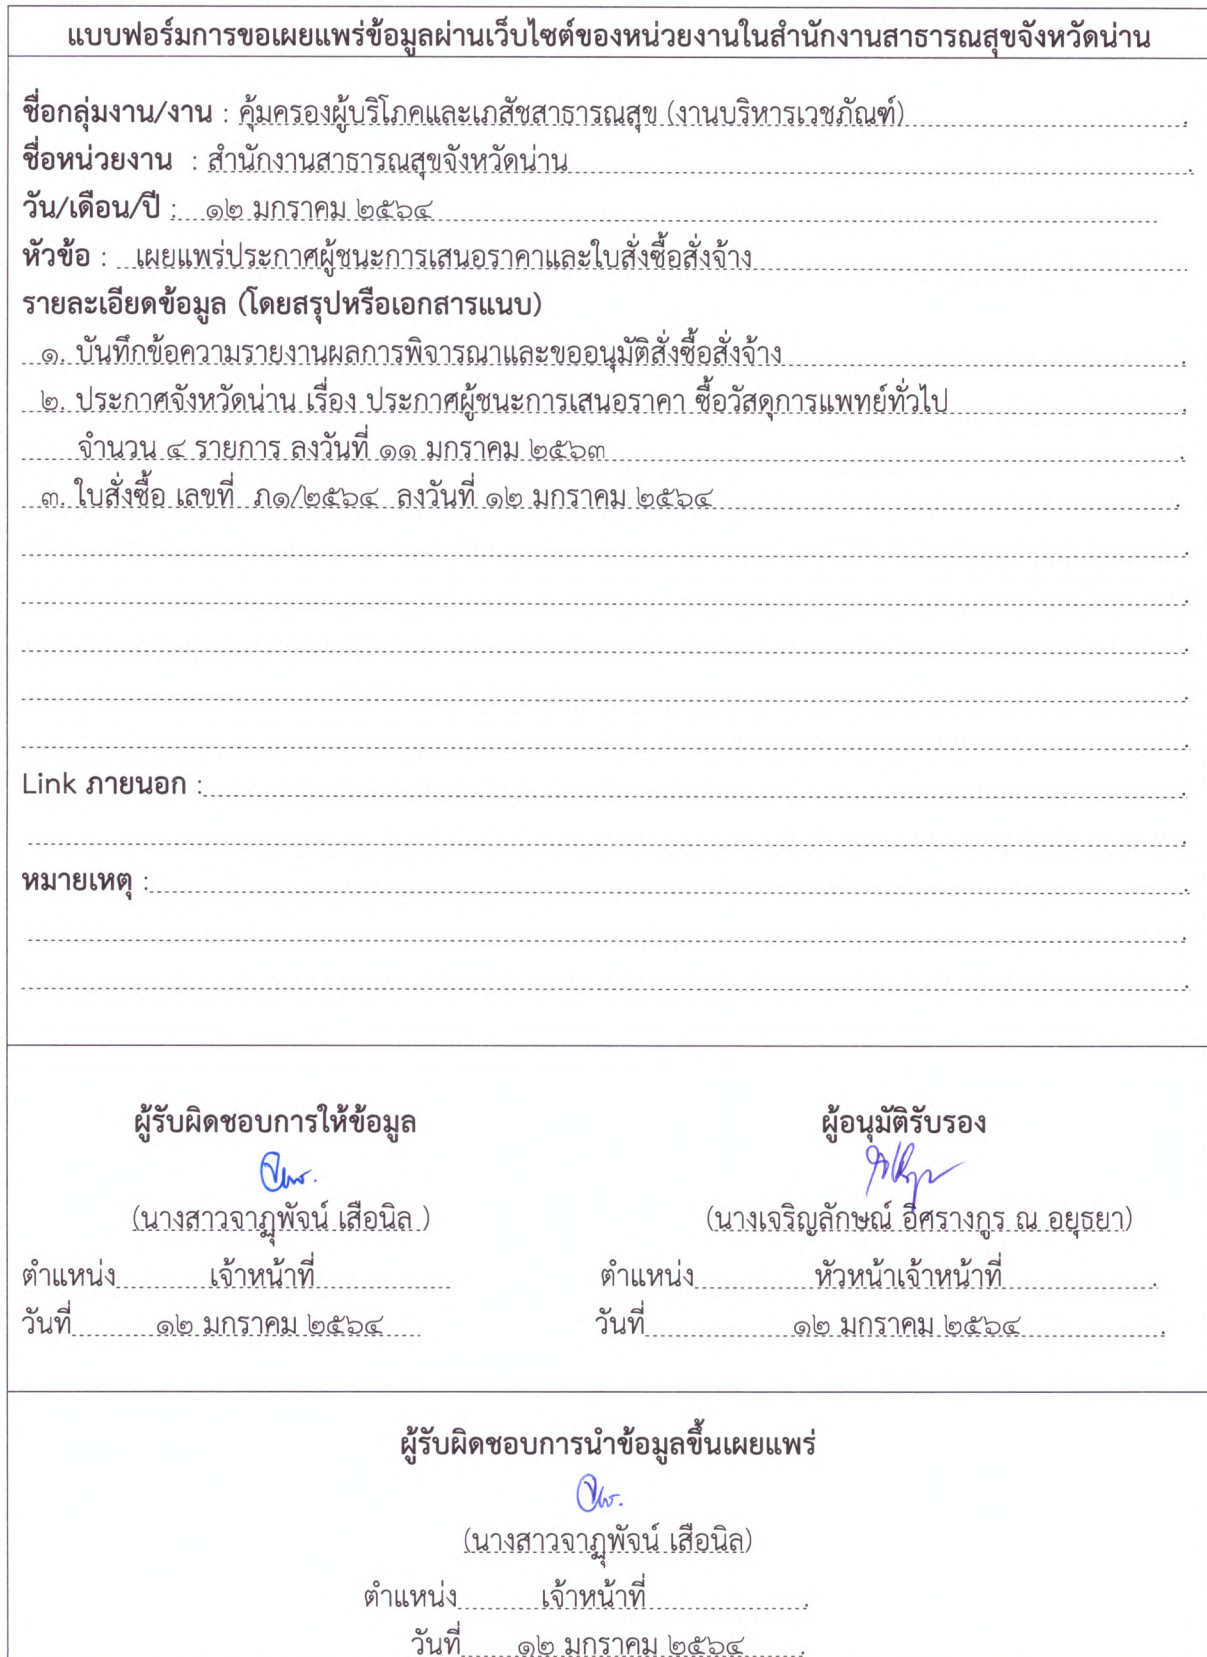 แบบฟอร์มการขอเผยแพร่ข้อมูลผ่านเว็บไซต์ของหน่วยงานในสำนักงานสาธารณสุขจังหวัดน่าน
ชื่อกลุ่มงาน/งาน : คุ้มครองผู้บริโภคและเภสัชสาธารณสุข (งานบริหารเวชภัณฑ์)
ชื่อหน่วยงาน : สำนักงานสาธารณสุขจังหวัดน่าน
วัน/เดือน/ปี : ๑๒ มกราคม ๒๕๖๔
หัวข้อ : เผยแพร่ประกาศผู้ชนะการเสนอราคาและใบสั่งซื้อสั่งจ้าง
รายละเอียดข้อมูล (โดยสรุปหรือเอกสารแนบ)
๑. บันทึกข้อความรายงานผลการพิจารณาและขออนุมัติสั่งซื้อสั่งจ้าง
๒. ประกาศจังหวัดน่าน เรื่อง ประกาศผู้ชนะการเสนอราคา ซื้อวัสดุการแพทย์ทั่วไป
จำนวน ๔ รายการ ลงวันที่ ๑๑ มกราคม ๒๕๖๓
๓. ใบสั่งซื้อ เลขที่ ภ๑/๒๕๖๔ ลงวันที่ ๑๒ มกราคม ๒๕๖๔
Link ภายนอก :
หมายเหตุ :
ผู้รับผิดชอบการให้ข้อมูล
(นางสาวจาฏุพัจน์ เสือนิล )
ตำแหน่ง เจ้าหน้าที่
วันที่ ๑๒ มกราคม ๒๕๖๔
ผู้อนุมัติรับรอง
(นางเจริญลักษณ์ อิศรางกูร ณ อยุธยา)
ตำแหน่ง หัวหน้าเจ้าหน้าที่
วันที่ ๑๒ มกราคม ๒๕๖๔
ผู้รับผิดชอบการนำข้อมูลขึ้นเผยแพร่
(นางสาวจาฏุพัจน์ เสือนิล)
ตำแหน่ง เจ้าหน้าที่
วันที่ ๑๒ มกราคม ๒๕๖๔